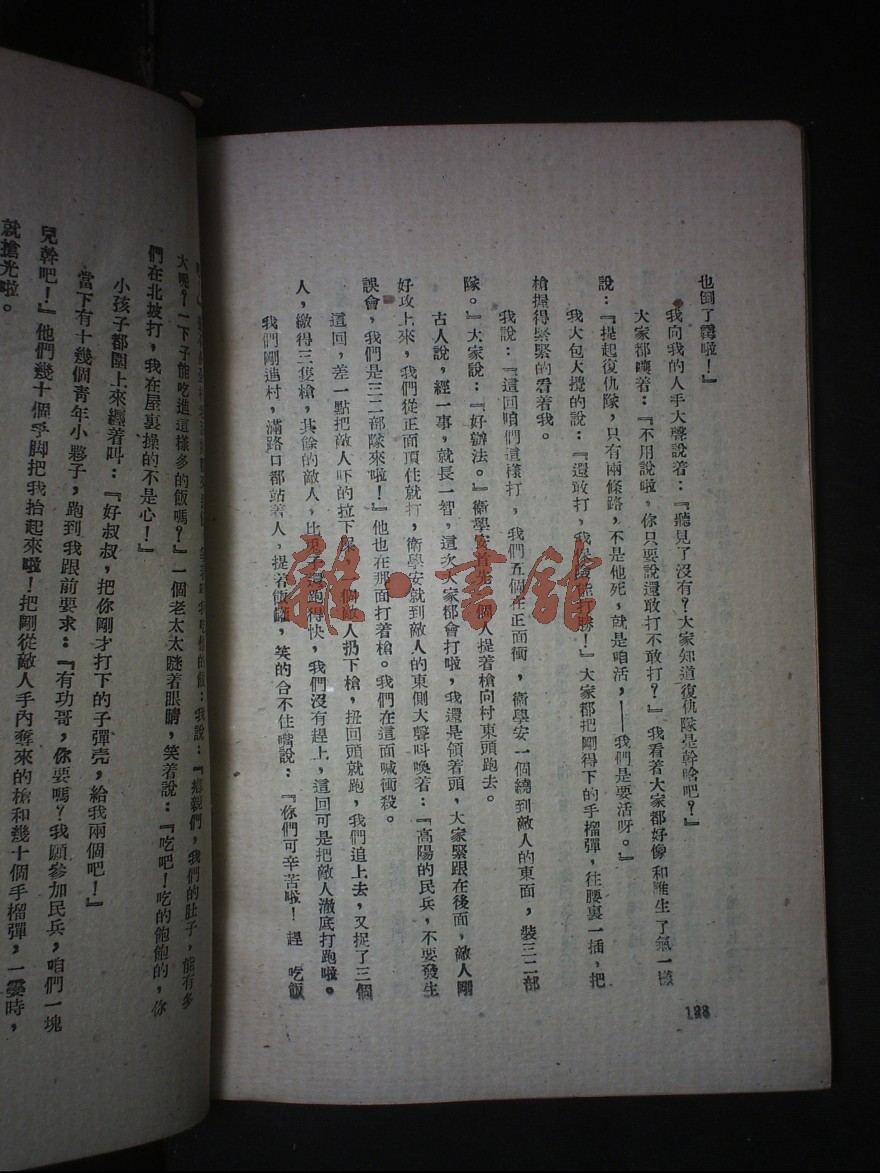 也倒了霉啦！』
我向我的人手大聲說着：『聽見了沒有？大家知道復仇隊是幹啥吧？』
大家都嚷着：『不用說啦，你只要說還敢打不敢打？』我看着大家都好像和誰生了氣一樣
說：『提起復仇隊，只有兩條路，不是他死，就是咱活，——我們是要活呀。』
我大包大攬的說：『還敢打，我保險能打勝！』大家都把剛得下的手榴彈，往腰裏一插，把
槍握得緊緊的看着我。
我說：『這回咱們這樣打，我們五個在正面衝，衛學安一個繞到敵人的東面，裝三二部
隊。』大家說：『好辦法。』衛學安首先一個人提着槍向村東頭跑去。
古人說，經一事，就長一智，這次大家都會打啦，我還是領着頭，大家緊跟在後面，敵人剛
好攻上來，我們從正面頂住就打，衛學安就到敵人的東側大聲呌喚着：『高陽的民兵，不要發生
誤會，我們是三二部隊來啦！』他也在那面打着槍。我們在這面喊衝殺。
這回，差一點把敵人吓的拉下 個敵人扔下槍，扭回頭就跑，我們追上去，又捉了三個
人，繳得三隻槍，其餘的敵人，比兎子還跑得快，我們沒有趕上，這回可是把敵人澈底打跑啦。
我們剛進村，滿路口都站着人，提着飯罐，笑的合不住嘴說：『你們可辛苦啦！趕 吃飯
128
我說：『鄉親們，我們的肚子，能有多
大呢？一下子能吃進這樣多的飯嗎？』一個老太太瞇着眼睛，笑着說：『吃吧！吃的飽飽的，你
們在北坡打，我在屋裏操的不是心！』
小孩子都圍上來纏着叫：『好叔叔，把你剛才打下的子彈壳，給我兩個吧！』
當下有十幾個青年小夥子，跑到我跟前要求：『有功哥，你要嗎？我願參加民兵，咱們一塊
兒幹吧！』他們幾十個手脚把我抬起來啦！把剛從敵人手內奪來的槍和幾十個手榴彈，一霎時，
就搶光啦。
雜·書館